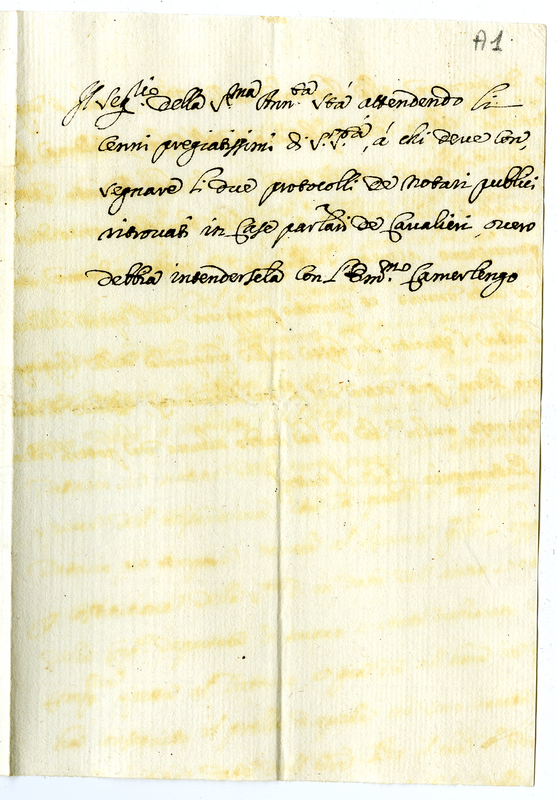 A1
Il Seg.rio della S.ma Ann.ta stà attendendo li
cenni pregiatissimi di S. S.tà, à chi deve con,
segnare li due protocolli de Notari publici
ritrovati in Case par.lari de Cavalieri, overo
debbia intendersela con l'Em.mo Camerlengo